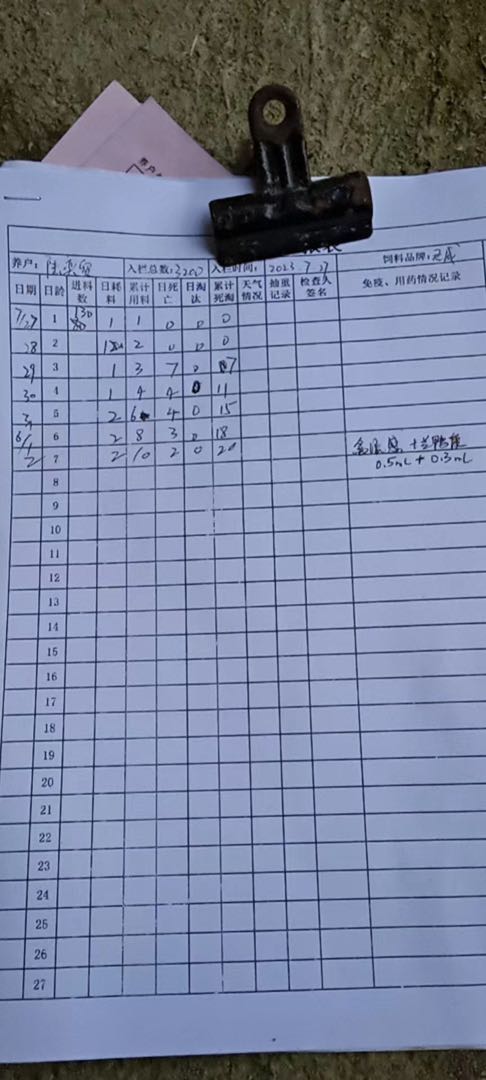 养户
养户： 入栏总数：3200 入栏时间：2023.7.27 饲料品牌：
日期 日龄 进料数 日耗料 累计用料 日死亡 日淘汰 累计死淘 天气情况 抽重记录 检查人签名 免疫、用药情况记录
7/27 1 130 80 1 1 0 0 0
28 2 2 0 0 0
29 3 1 3 7 0 7
30 4 1 4 4 0 11
5 2 6 4 0 15
6 2 8 3 0 18
2 7 2 10 2 0 20
0.5mL + 0.3mL
8
9
10
11
12
13
14
15
16
17
18
19
20
21
22
23
24
25
26
27